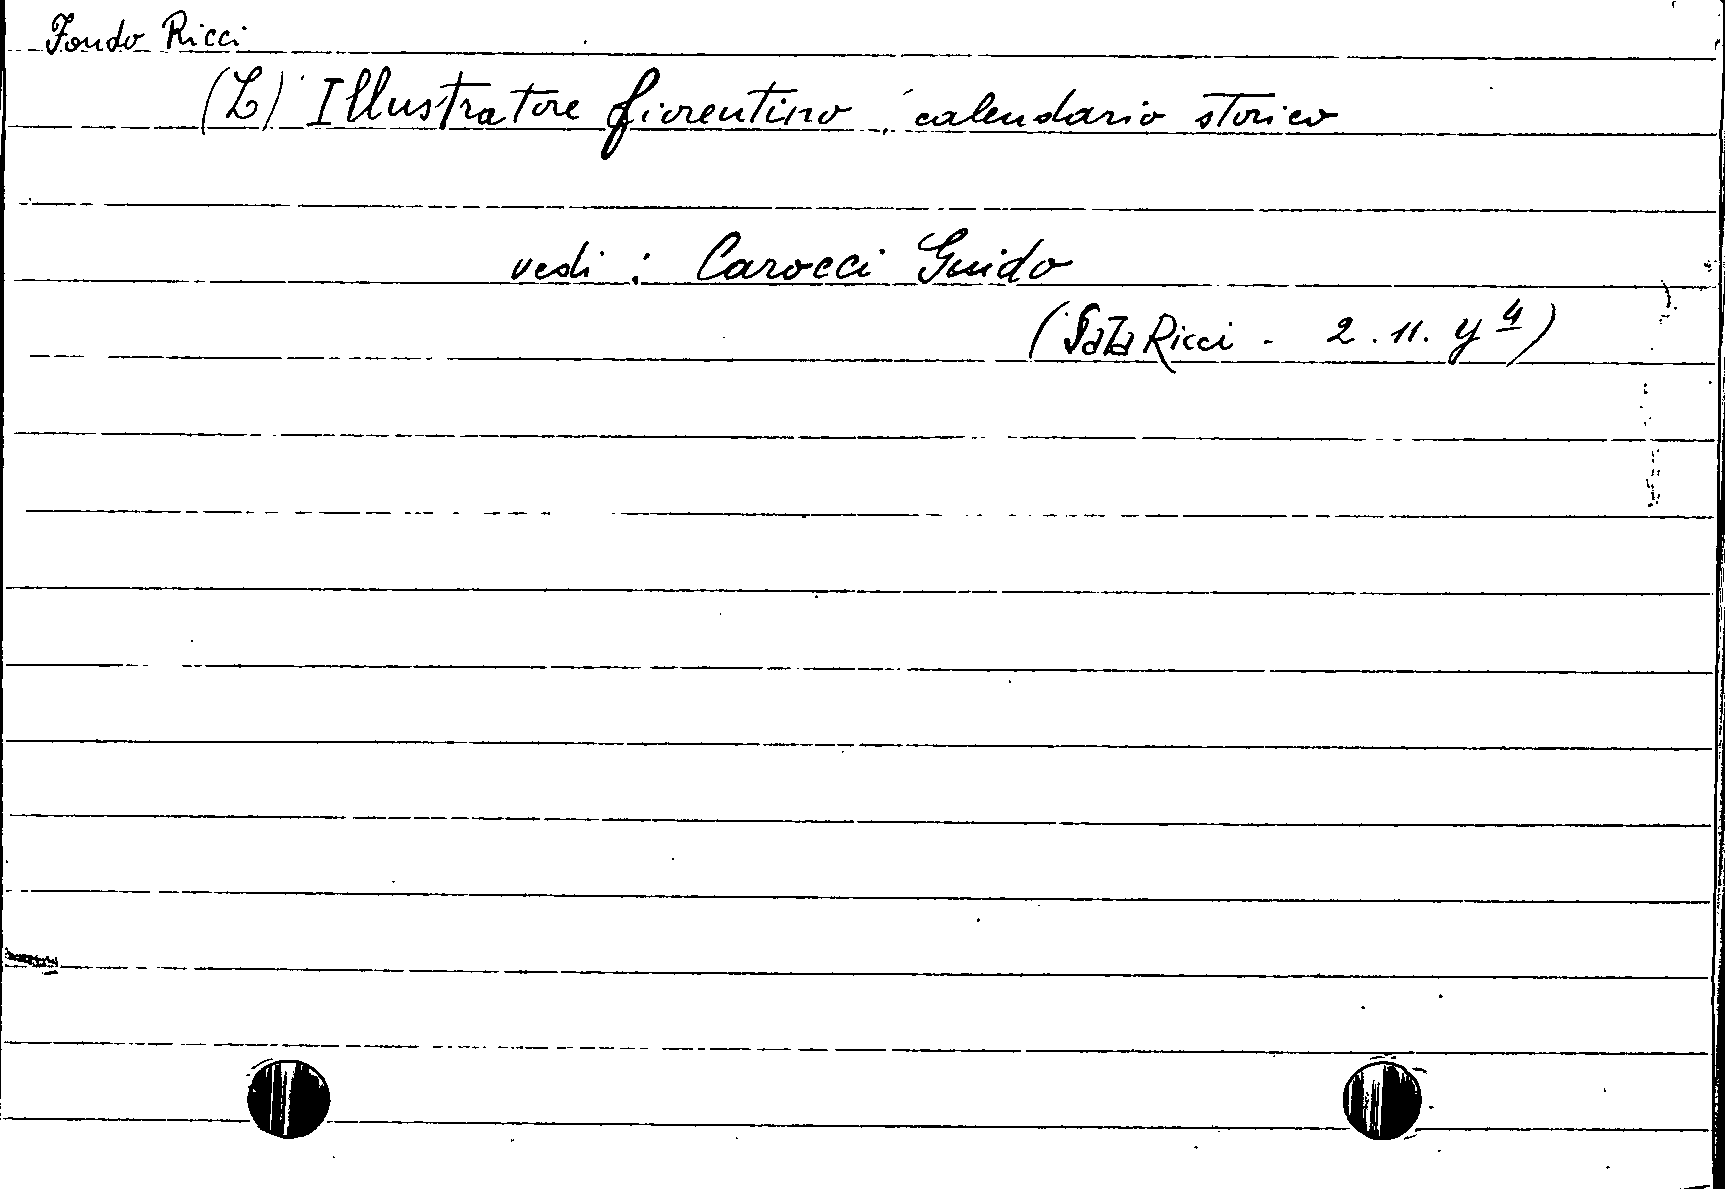 Fondo Ricci
(L') Illustratore fiorentino, calendario storico
vedi: Carocci Guido
(Sala Ricci - 2.11.y⁴)